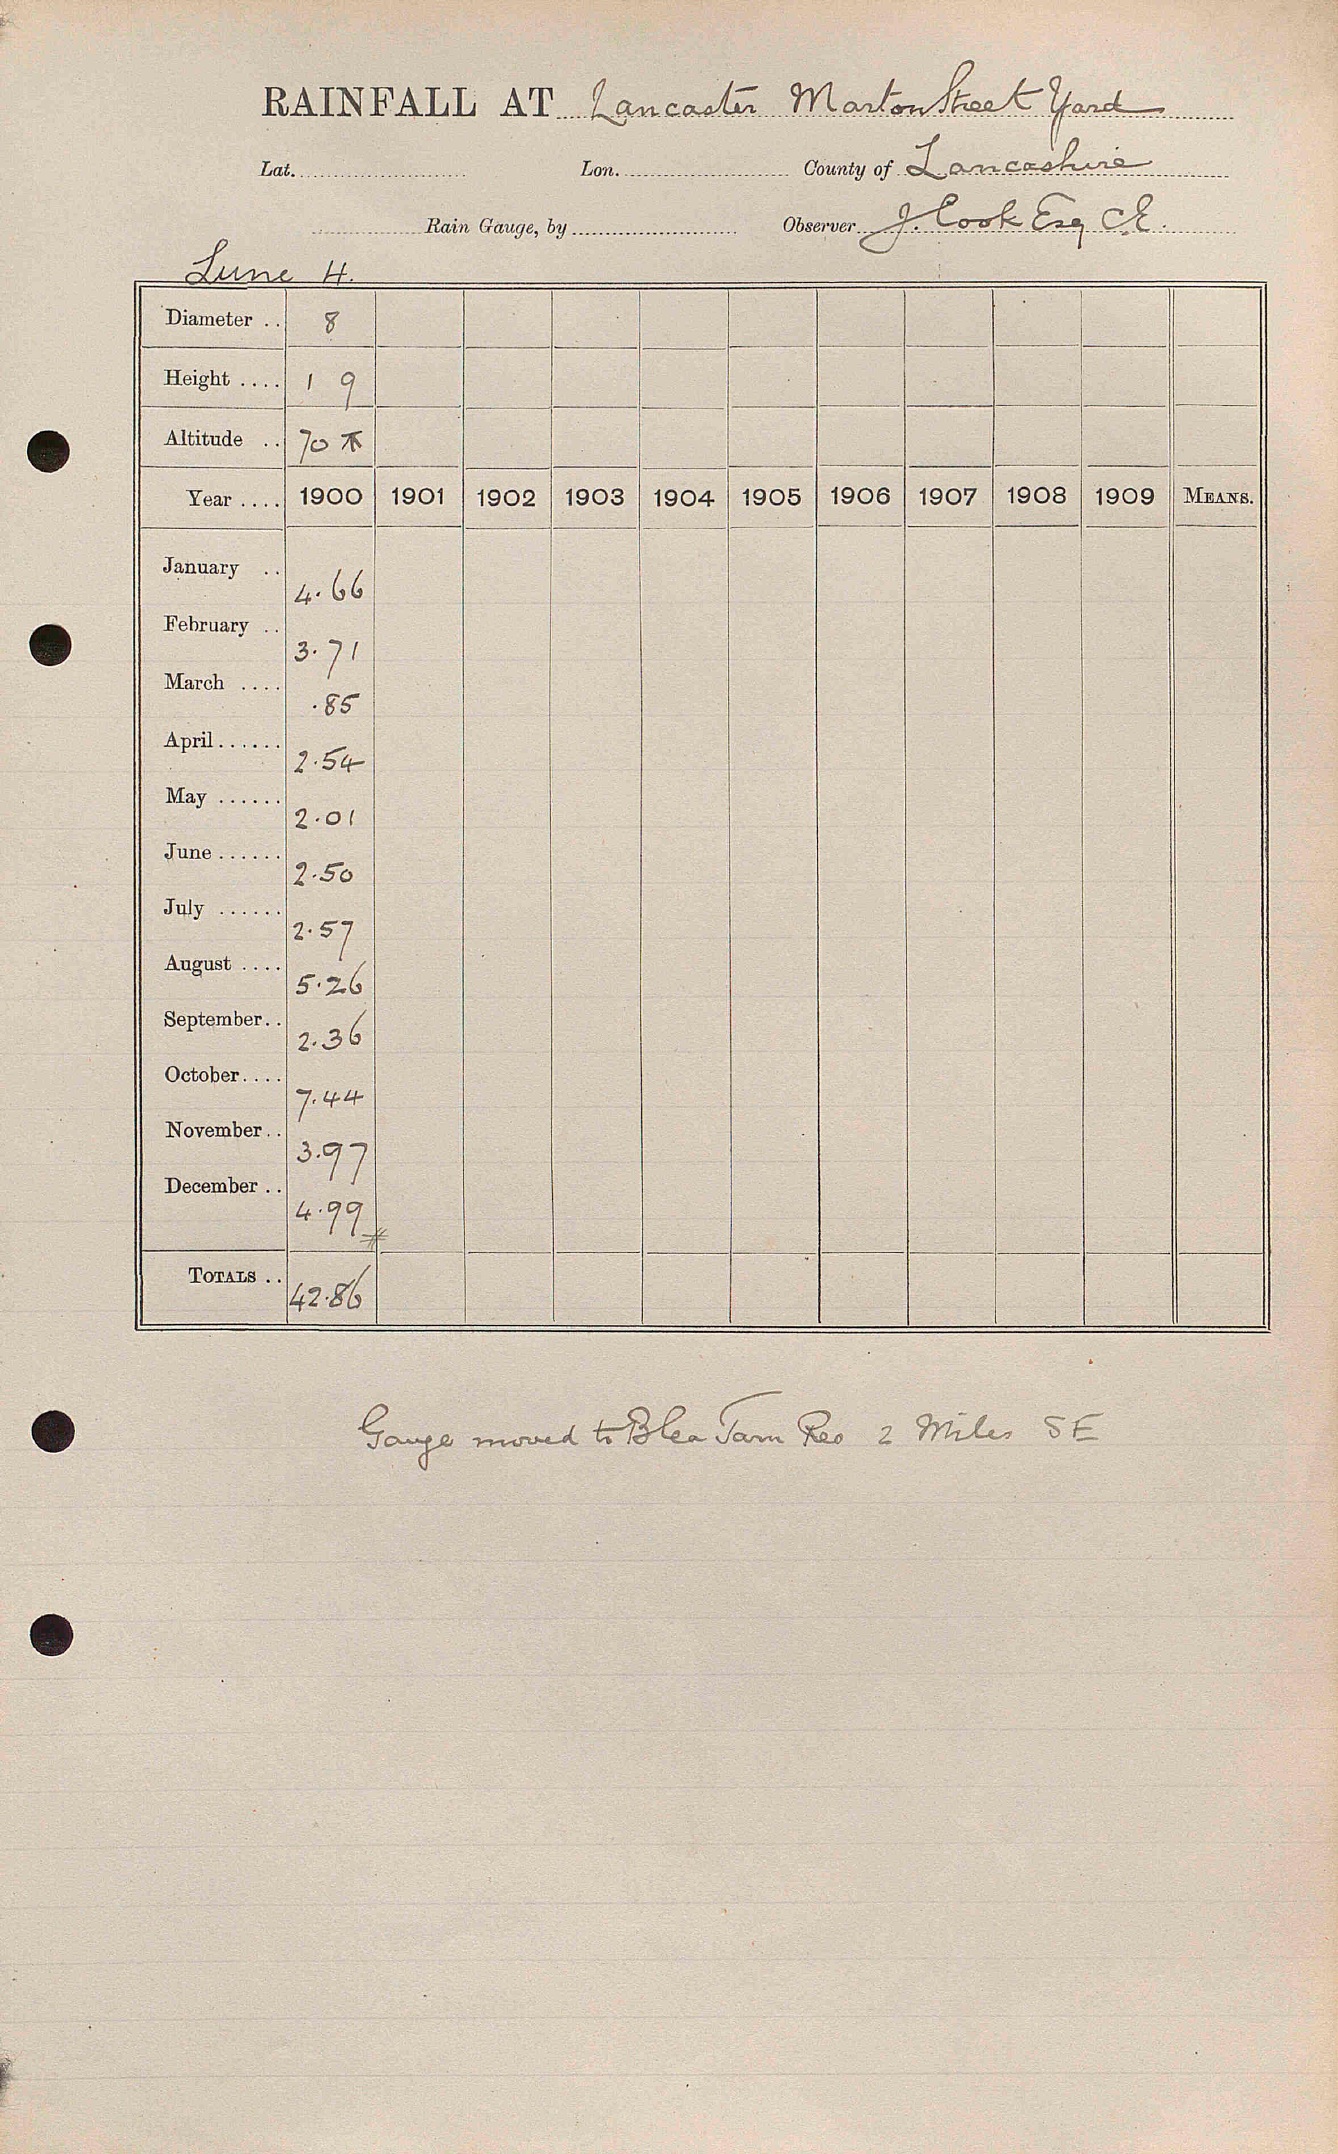 RAINFALL AT Lancaster Marton Street Yard
Lat. Lon. County of Lancashire
Rain Gauge, by Observer J. Cook Esq C.E.
Lune 4.
Diameter .. 8
Height .... 1 9
Altitude .. 70
Year .... 1900 1901 1902 1903 1904 1905 1906 1907 1908 1909 MEANS.
January .. 4.66
February .. 3.71
March .... .85
April ...... 2.54
May ...... 2.01
June ...... 2.50
July ...... 2.57
August .... 5.26
September.. 2.36
October.... 7.44
November.. 3.97
December .. 4.99
TOTALS .. 42.86
Gauge moved to Blea Tarn Res 2 Miles SE